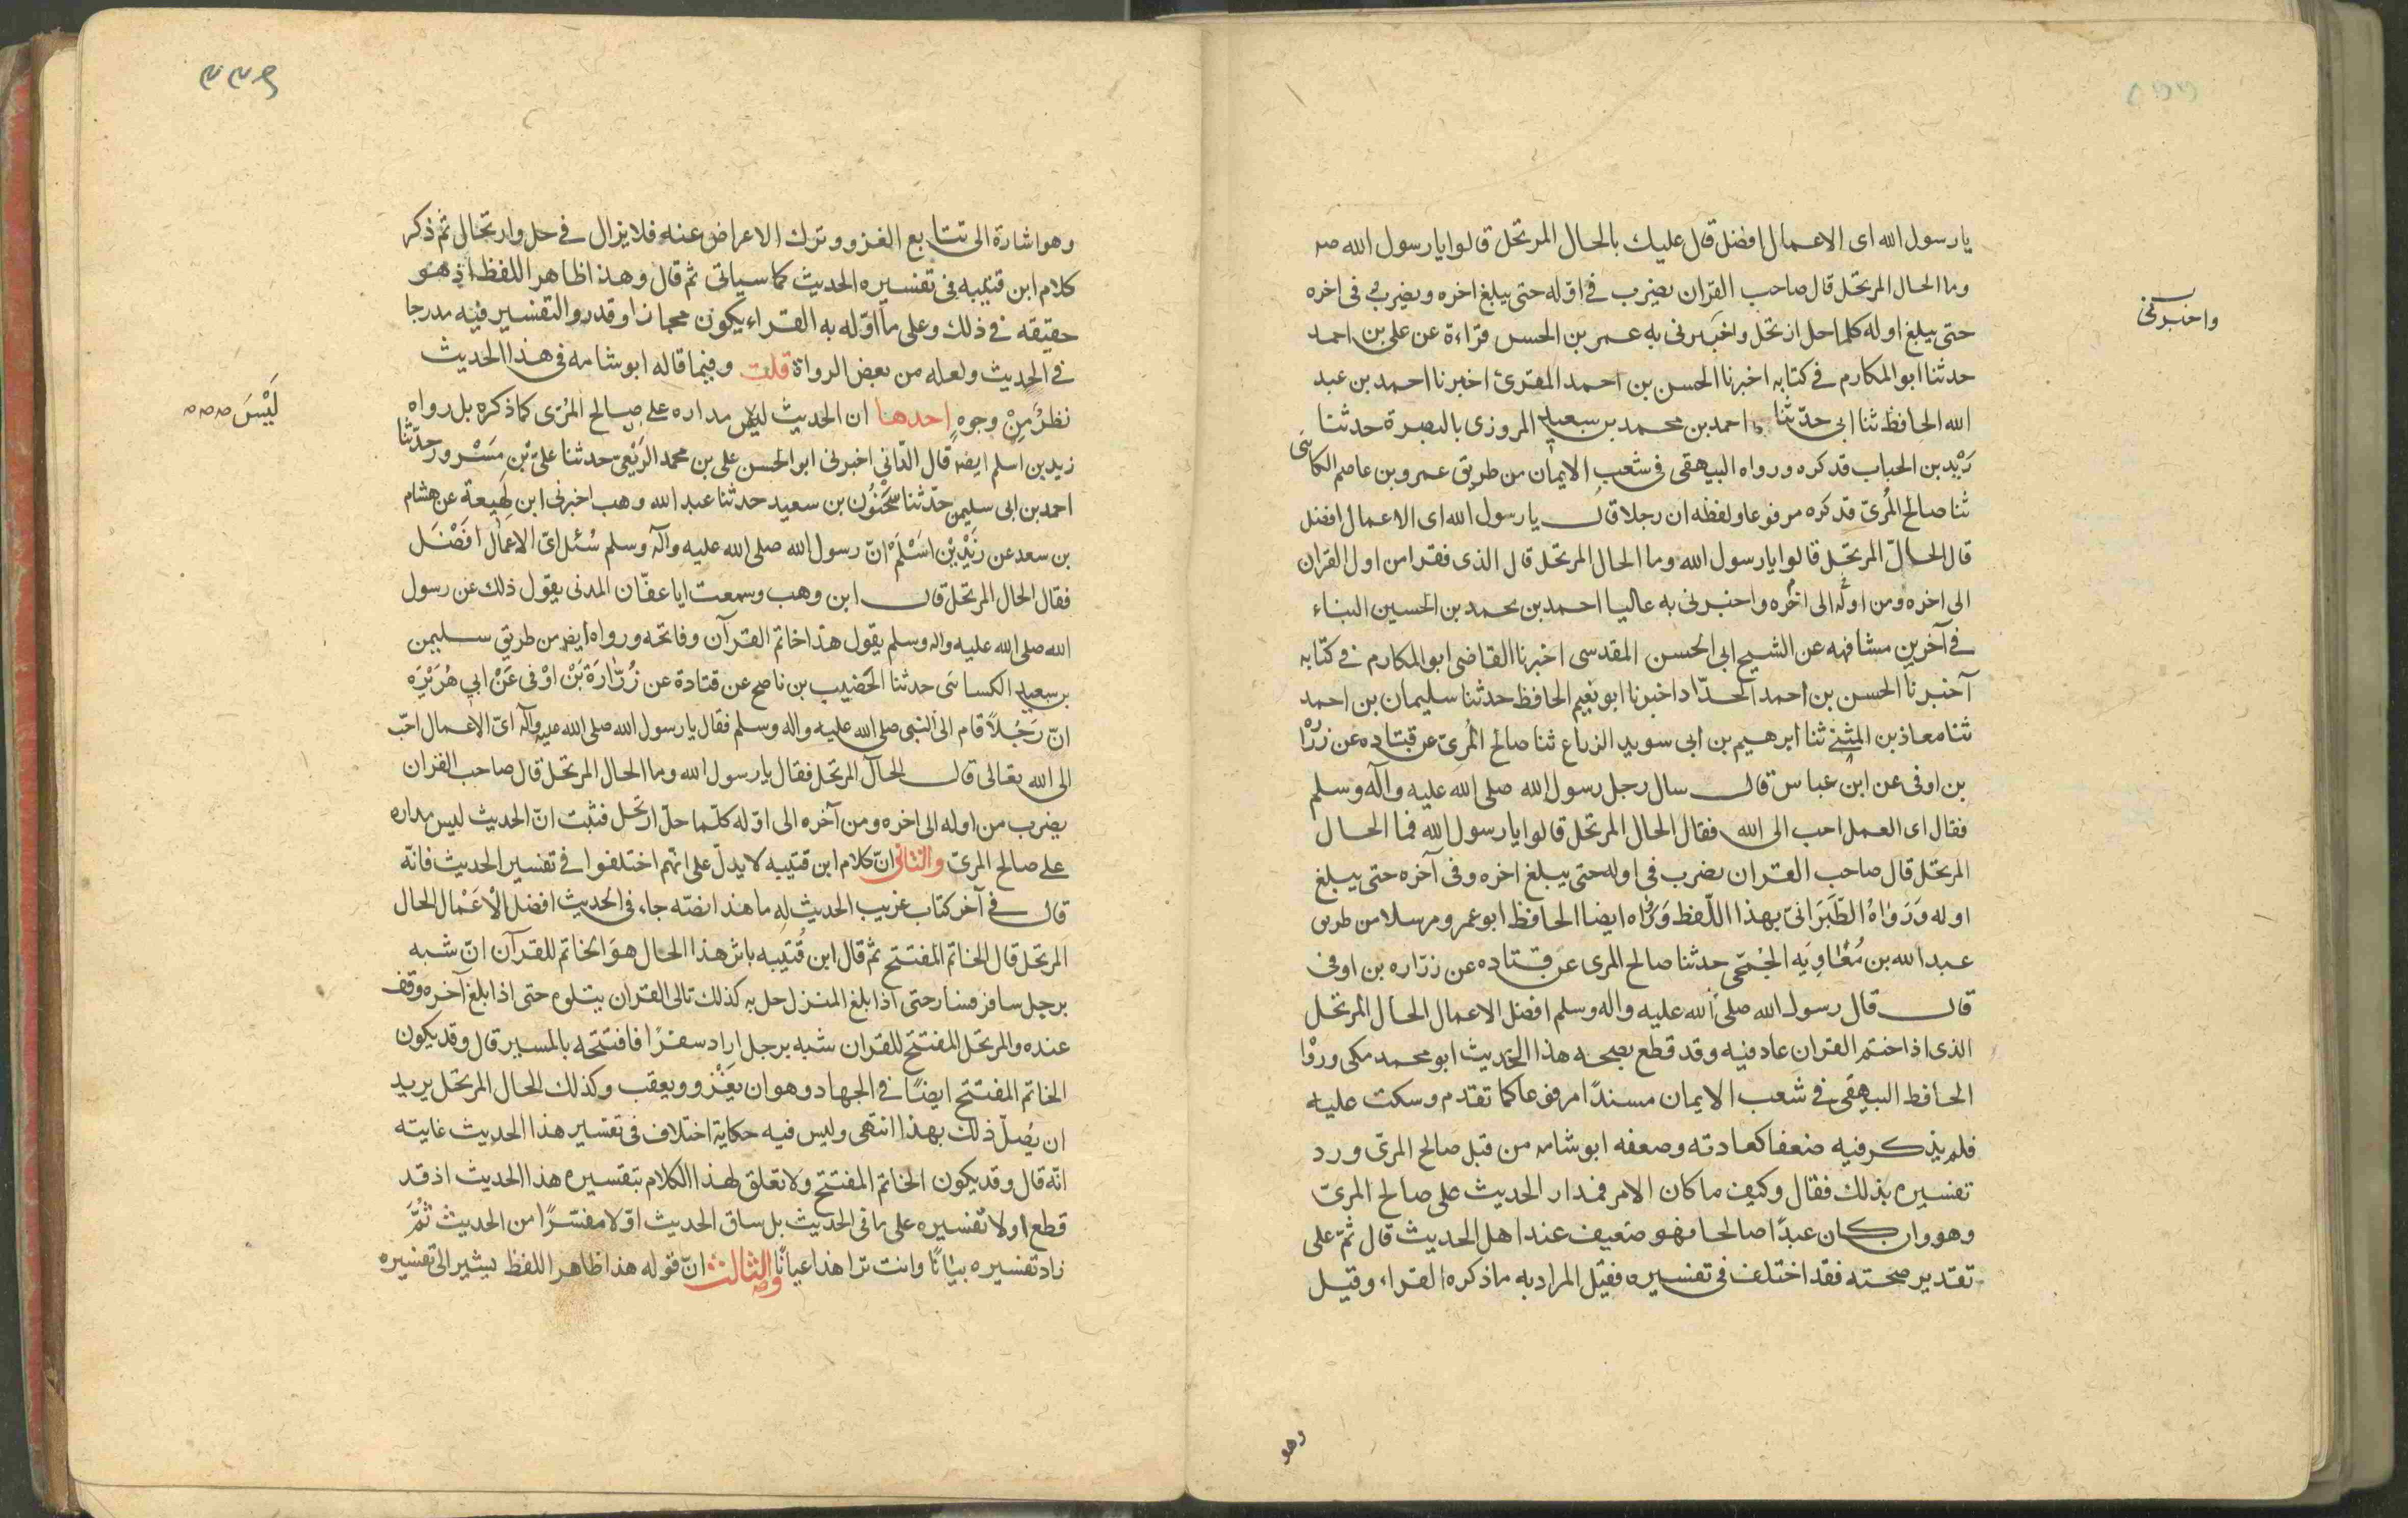 يا رسول الله اى الاعمال افضل قال عليك بالحال المرتحل قالوا يا رسول الله صه
وما الحال المرتحل قال صاحب القران يضرب فى اوّله حتى يبلغ اخره ويضرب فى اخره
واخبرنى
حتى يبلغ اوله كلما حل ارتحل واخبرنى به عمر بن الحسن قراءة عن على بن احمد
حدثنا ابو المكارم فى كتابه اخبرنا الحسن بن احمد المقرئ اخبرنا احمد بن عبد
الله الحافظ ثنا ابى حدّثنا احمد بن محمد بن سعيد المروزى بالبصرة حدثنا
زَيْد بن الحباب فذكره ورواه البيهقى فى شعب الايمان من طريق عمرو بن عاصم الكلابى
ثنا صالح المُرىّ فذكره مرفوعا ولفظه ان رجلا قال يا رسول الله اى الاعمال افضل
قال الحالّ المرتحل قالوا يا رسول الله وما الحال المرتحل قال الذى يقرا من اول القران
الى اخره ومن اوله الى اخره واخبرنى به عاليا احمد بن محمد بن الحسين البناء
فى آخرين مشافهه عن الشيخ ابى الحسن المقدسى اخبرنا القاضى ابو المكارم فى كتابه
آخبرنا الحسن بن احمد الحدّاد اخبرنا ابو نعيم الحافظ حدثنا سليمان بن احمد
ثنا معاذ بن المثنى ثنا ابرهيم بن ابى سويد الزراع ثنا صالح المُرىّ عن قتاده عن زرا
بن اوفى عن ابن عباس قال سال رجل رسول الله صلى الله عليه وآله وسلم
فقال اى العمل احب الى الله فقال الحال المرتحل قالوا يا رسول الله فما الحال
المرتحل قال صاحب القران يضرب فى اوله حتى يبلغ اخره وفى آخره حتى يبلغ
اوله وَرَوَاهُ الطّبَرَانىّ بهذا اللّفظ وَرَواه ايضا الحافظ ابو عمرو مرسلا من طريق
عبد الله بن مُعَاوِيَه الجُمَحى حدثنا صالح المرى عن قتاده عن زرّاره بن اوفى
قال قال رسول الله صلى الله عليه واله وسلم افضل الاعمال الحال المرتحل
الذى اذا ختم القران عاد فيه وقد قطع بصحه هذا الحديث ابو محمد مكى وروا
الحافظ البيهقى فى شعب الايمان مسندًا مرفوعا كما تقدم وسكت عليه
فلم يذكر فيه ضعفا كعادته وضعفه ابو شامه من قبل صالح المرىّ ورد
تفسيره بذلك فقال وكيف ما كان الامر فمدار الحديث على صالح المرىّ
وهو وان كان عبدًا صالحا فهو ضعيف عند اهل الحديث قال ثمّ على
تقدير صحّته فقد اختلف فى تفسيره فقيل المراد به ما ذكره القراء وقيل
وهو
وهو اشارة الى تتابع الغزو وترك الاعراض عنه فلا يزال فى حل وارتحال ثم ذكر
كلام ابن قتيبه فى تفسيره الحديث كما سياتى ثم قال وهذا ظاهر اللفظ اذ هو
حقيقه فى ذلك وعلى ما اوّله به القراء يكون مجازا وقدروا التفسير فيه مدرجا
فى الحديث ولعله من بعض الرواة قلت وفيما قاله ابو شامه فى هذا الحديث
نظرٌ مِنْ وجوهٍ احدها ان الحديث ليس مداره على صالح المُرّى كما ذكره بل رواه
لَيْسَ صه صه صه
زيد بن اسلم ايضه قال الدّانى اخبرنى ابو الحسن على بن محمد الرَبَعىّ حدثنا علىّ بْن مَسْرور حدّثنا
احمد بن ابى سليمن حدّثنا سَحْنُوُن بن سعيد حدثنا عبد الله وهب اخبرنى ابن لهِيعة عن هشام
بن سعد عن زَيْدِ بْن اسْلَمْ انّ رسول الله صلى الله عليه وآله وسلم سُئل اىّ الاعمال افْضَل
فقال الحال المرتحل قال ابن وهب وسمعت ابا عفّان المدنى يقول ذلك عن رسول
الله صلى الله عليه واله وسلم يقول هذا خاتم القرآن وفاتحه ورواه ايضه من طريق سليمن
بن سعيد الكسائى حدثنا الخَصيب بن ناصح عن قتادة عن زُرّارَةَ بْن اوْفى عَنْ ابى هُرَيْرَه
انّ رَجُلاً قام الى النبى صلى الله عليه واله وسلم فقال يا رسول الله صلى الله عليه وآله اىّ الاعمال احّب
الى الله تعالى قال الحآل المرتحل فقال يا رسول الله وما الحال المرتحل قال صاحب القران
يضرب من اوله الى اخره ومن آخره الى اوّله كلّما حلّ ارتحل فثبت انّ الحديث ليس مداره
على صالح المرىّ والثانى انّ كلام ابن قتيبه لا يدلّ على انّهم اختلفوا فى تفسير الحديث فانّه
قال فى آخر كتاب غريب الحديث له ما هذا نصّه جاء فى الحديث افضل الْاَعْمال الحال
المرتحل قال الخاتم المفتتح ثم قال ابن قُتَيبه باثر هذا الحال هوَ الخاتم للقرآن انّ شبه
برجل سافر فسار حتى اذا بلغ المنزل حل به كذلك تالى القران يتلوه حتى اذا بلغ آخره وقف
عنده والمرتحل المفتتح للقران شبه برجل اراد سفرًا فافتتحه بالمسير قال وقد يكون
الخاتم المفتتح ايضًا فى الجهاد وهو ان يَغْزو ويعقب وكذلك الحال المرتحل يريد
ان يصُلّ ذلك بهذا انتهى وليس فيه حكاية اختلاف فى تفسير هذا الحديث غايته
انّه قال وقد يكون الخاتم المفتتح ولا تعلق لهذا الكلام بتفسيره هذا الحديث اذ قد
قطع اولا تفسيره على ما فى الحديث بل ساق الحديث اوّلا مفسّرًا من الحديث ثُمَّ
زاد تفسيره بيانًا وانت ترا هذا عيانًا والثالث انّ قوله هذا ظاهر اللفظ يشير الى تفسيره